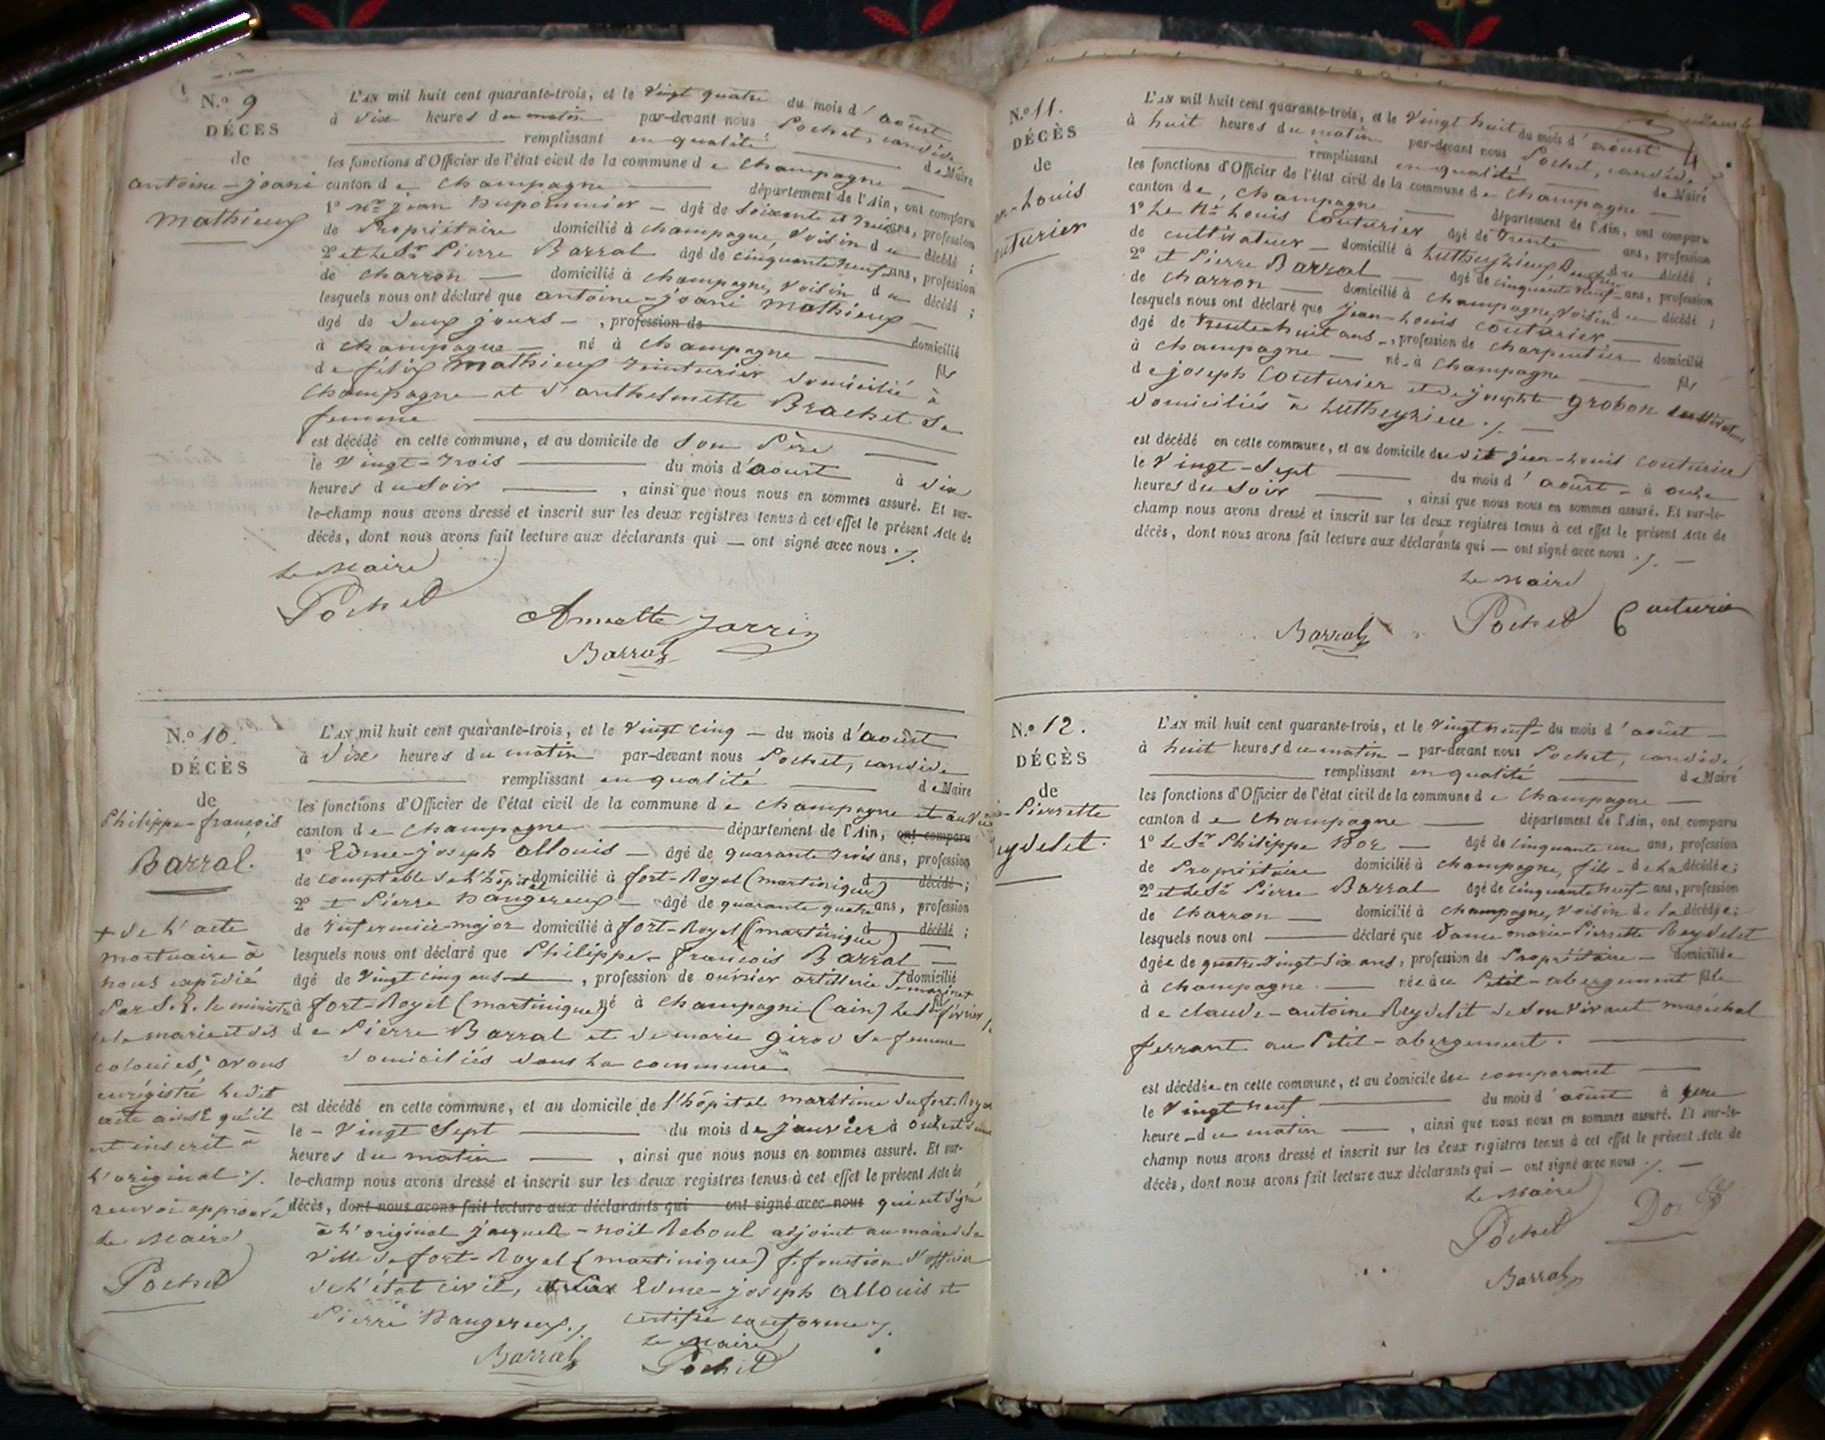 N.º 9
DÉCÈS
de
antoine-joani
Mathieux
L'AN mil huit cent quarante-trois, et le vingt quatre du mois d'aoûst
à dixe heures du matin par-devant nous Pochet, candide
remplissant en qualité de Maire
les fonctions d'Officier de l'état civil de la commune de champagne
canton de champagne département de l'Ain, ont comparu
1º jean âgé de soixante et ans, profession
de Propriétaire domicilié à champagne, voisin du décédé ;
2º et le Sr Pierre Barral âgé de cinquante neuf ans, profession
de charron domicilié à champagne, voisin du décédé ;
lesquels nous ont déclaré que antoine-joani Mathieux
âgé de deux jours, profession de domicilié
à champagne né à champagne fils
de félix Mathieux domicilié à
champagne et d'anthelmette Brachet sa
femme
est décédé en cette commune, et au domicile de son Père
le vingt-trois du mois d'aoûst à dix
heures du soir, ainsi que nous nous en sommes assuré. Et sur-
le-champ nous avons dressé et inscrit sur les deux registres tenus à cet effet le présent Acte de
décès, dont nous avons fait lecture aux déclarants qui — ont signé avec nous ./.
Le Maire
Pochet
Annette Jarrin
Barral
N.º 10.
DÉCÈS
de
Philippe-françois
Barral.
+ de l'acte
mortuaire à
nous expédié
Par S. E. le ministre
de la marie et des
colonies, avons
enrégistré ledit
acte ainsi qu'il
est inscrit à
l'original ./.
renvoi approuvé
Le Maire
Pochet
L'AN mil huit cent quarante-trois, et le vingt cinq — du mois d'aoûst
à dixe heures du matin par-devant nous Pochet, candide
remplissant en qualité de Maire
les fonctions d'Officier de l'état civil de la commune de champagne et au vu
canton de champagne département de l'Ain, ont comparu
1º Edme-joseph allouis — âgé de quarante trois ans, profession
de comptable de l'hôpital domicilié à fort-Royal (martinique) d décédé ;
2º et Pierre Dangereux — âgé de quarante quatre ans, profession
de infermier major domicilié à fort-Royal (martinique) d décédé ;
lesquels nous ont déclaré que Philippe-françois Barral
âgé de vingt cinq ans, profession de ouvrier artillerie de marine domicilié
à fort-Royal (martinique) né à champagne (ain) le février
de Pierre Barral et de marie girod sa femme
domiciliés dans la commune
est décédé en cette commune, et au domicile de l'hôpital maritime du fort-Royal
le — vingt sept du mois de janvier à
heures du matin, ainsi que nous nous en sommes assuré. Et sur-
le-champ nous avons dressé et inscrit sur les deux registres tenus à cet effet le présent Acte de
décès, dont nous avons fait lecture aux déclarants qui ont signé avec nous qui ont signé
à l'original jacques-noël Reboul adjoint au maire de la
ville de fort-Royal (martinique) f. fonction d'officier
de l'état civil, Edme-joseph allouis et
Pierre Dangereux ./. certifié conforme ./.
Le Maire
Barral Pochet
N.º 11.
DÉCÈS
de
-Louis
couturier
L'AN mil huit cent quarante-trois, et le vingt huit du mois d'aoûst
à huit heures du matin par-devant nous Pochet, candide
remplissant en qualité de Maire
les fonctions d'Officier de l'état civil de la commune de champagne
canton de champagne département de l'Ain, ont comparu
1º Le Louis couturier âgé de trente ans, profession
de cultivateur — domicilié à Lutheyzieu, du décédé ;
2º et Pierre Barral — âgé de cinquante neuf ans, profession
de charron domicilié à champagne, voisin du décédé ;
lesquels nous ont déclaré que jean-Louis couturier
âgé de trente huit ans, profession de charpentier domicilié
à champagne — né à champagne fils
de joseph couturier et de josephte grobon cultivateurs
domiciliés à Lutheyzieu ./.
est décédé en cette commune, et au domicile du dit jean-Louis couturier
le vingt-sept du mois d'aoûst — à onze
heures du soir, ainsi que nous nous en sommes assuré. Et sur-le-
champ nous avons dressé et inscrit sur les deux registres tenus à cet effet le présent Acte de
décès, dont nous avons fait lecture aux déclarants qui — ont signé avec nous ./.
Le Maire
Barral Pochet Couturier
N.º 12.
DÉCÈS
de
-Pierrette
Reydelet.
L'AN mil huit cent quarante-trois, et le vingt neuf du mois d'aoûst
à huit heures du matin — par-devant nous Pochet, candide
remplissant en qualité de Maire
les fonctions d'Officier de l'état civil de la commune de champagne
canton de champagne département de l'Ain, ont comparu
1º Le Sr Philippe Dor — âgé de cinquante un ans, profession
de Propriétaire domicilié à champagne, fils de la décédée ;
2º et le Sr Pierre Barral âgé de cinquante neuf ans, profession
de charron — domicilié à champagne, voisin de la décédée ;
lesquels nous ont déclaré que Dame marie-Pierrette Reydelet
âgée de quatre vingt six ans, profession de Propriétaire — domiciliée
à champagne née au Petit-abergement fille
de claude-antoine Reydelet de son vivant maréchal
ferrant au Petit-abergement.
est décédée en cette commune, et au domicile du comparant
le vingt neuf du mois d'aoûst à une
heure du matin, ainsi que nous nous en sommes assuré. Et sur-le-
champ nous avons dressé et inscrit sur les deux registres tenus à cet effet le présent Acte de
décès, dont nous avons fait lecture aux déclarants qui — ont signé avec nous ./.
Le Maire
Pochet Dor
Barral